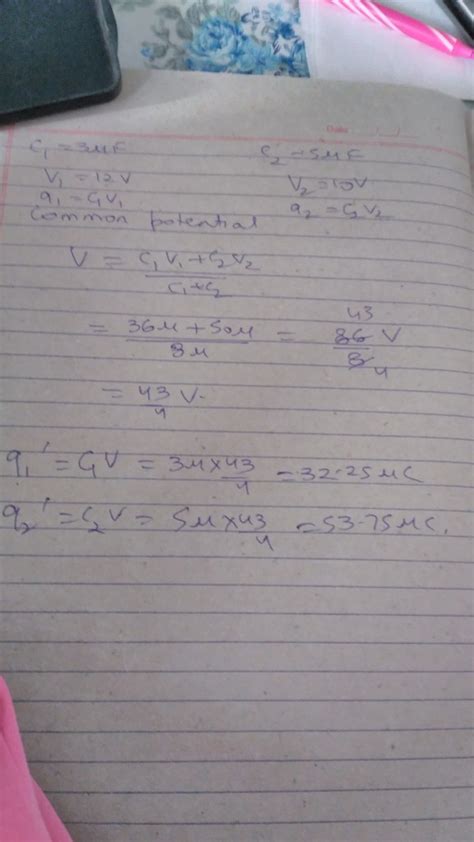 Date / /
C₁ = 3μF C₂ = 5μF
V₁ = 12V V₂ = 10V
q₁ = C₁V₁ q₂ = C₂V₂
Common potential
V = C₁V₁ + C₂V₂ / C₁+C₂
= 36μ + 50μ / 8μ = 86 43 / 8 4 V
= 43/4 V.
q₁' = C₁V = 3μ × 43/4 = 32.25μC
q₂' = C₂V = 5μ × 43/4 = 53.75μC.